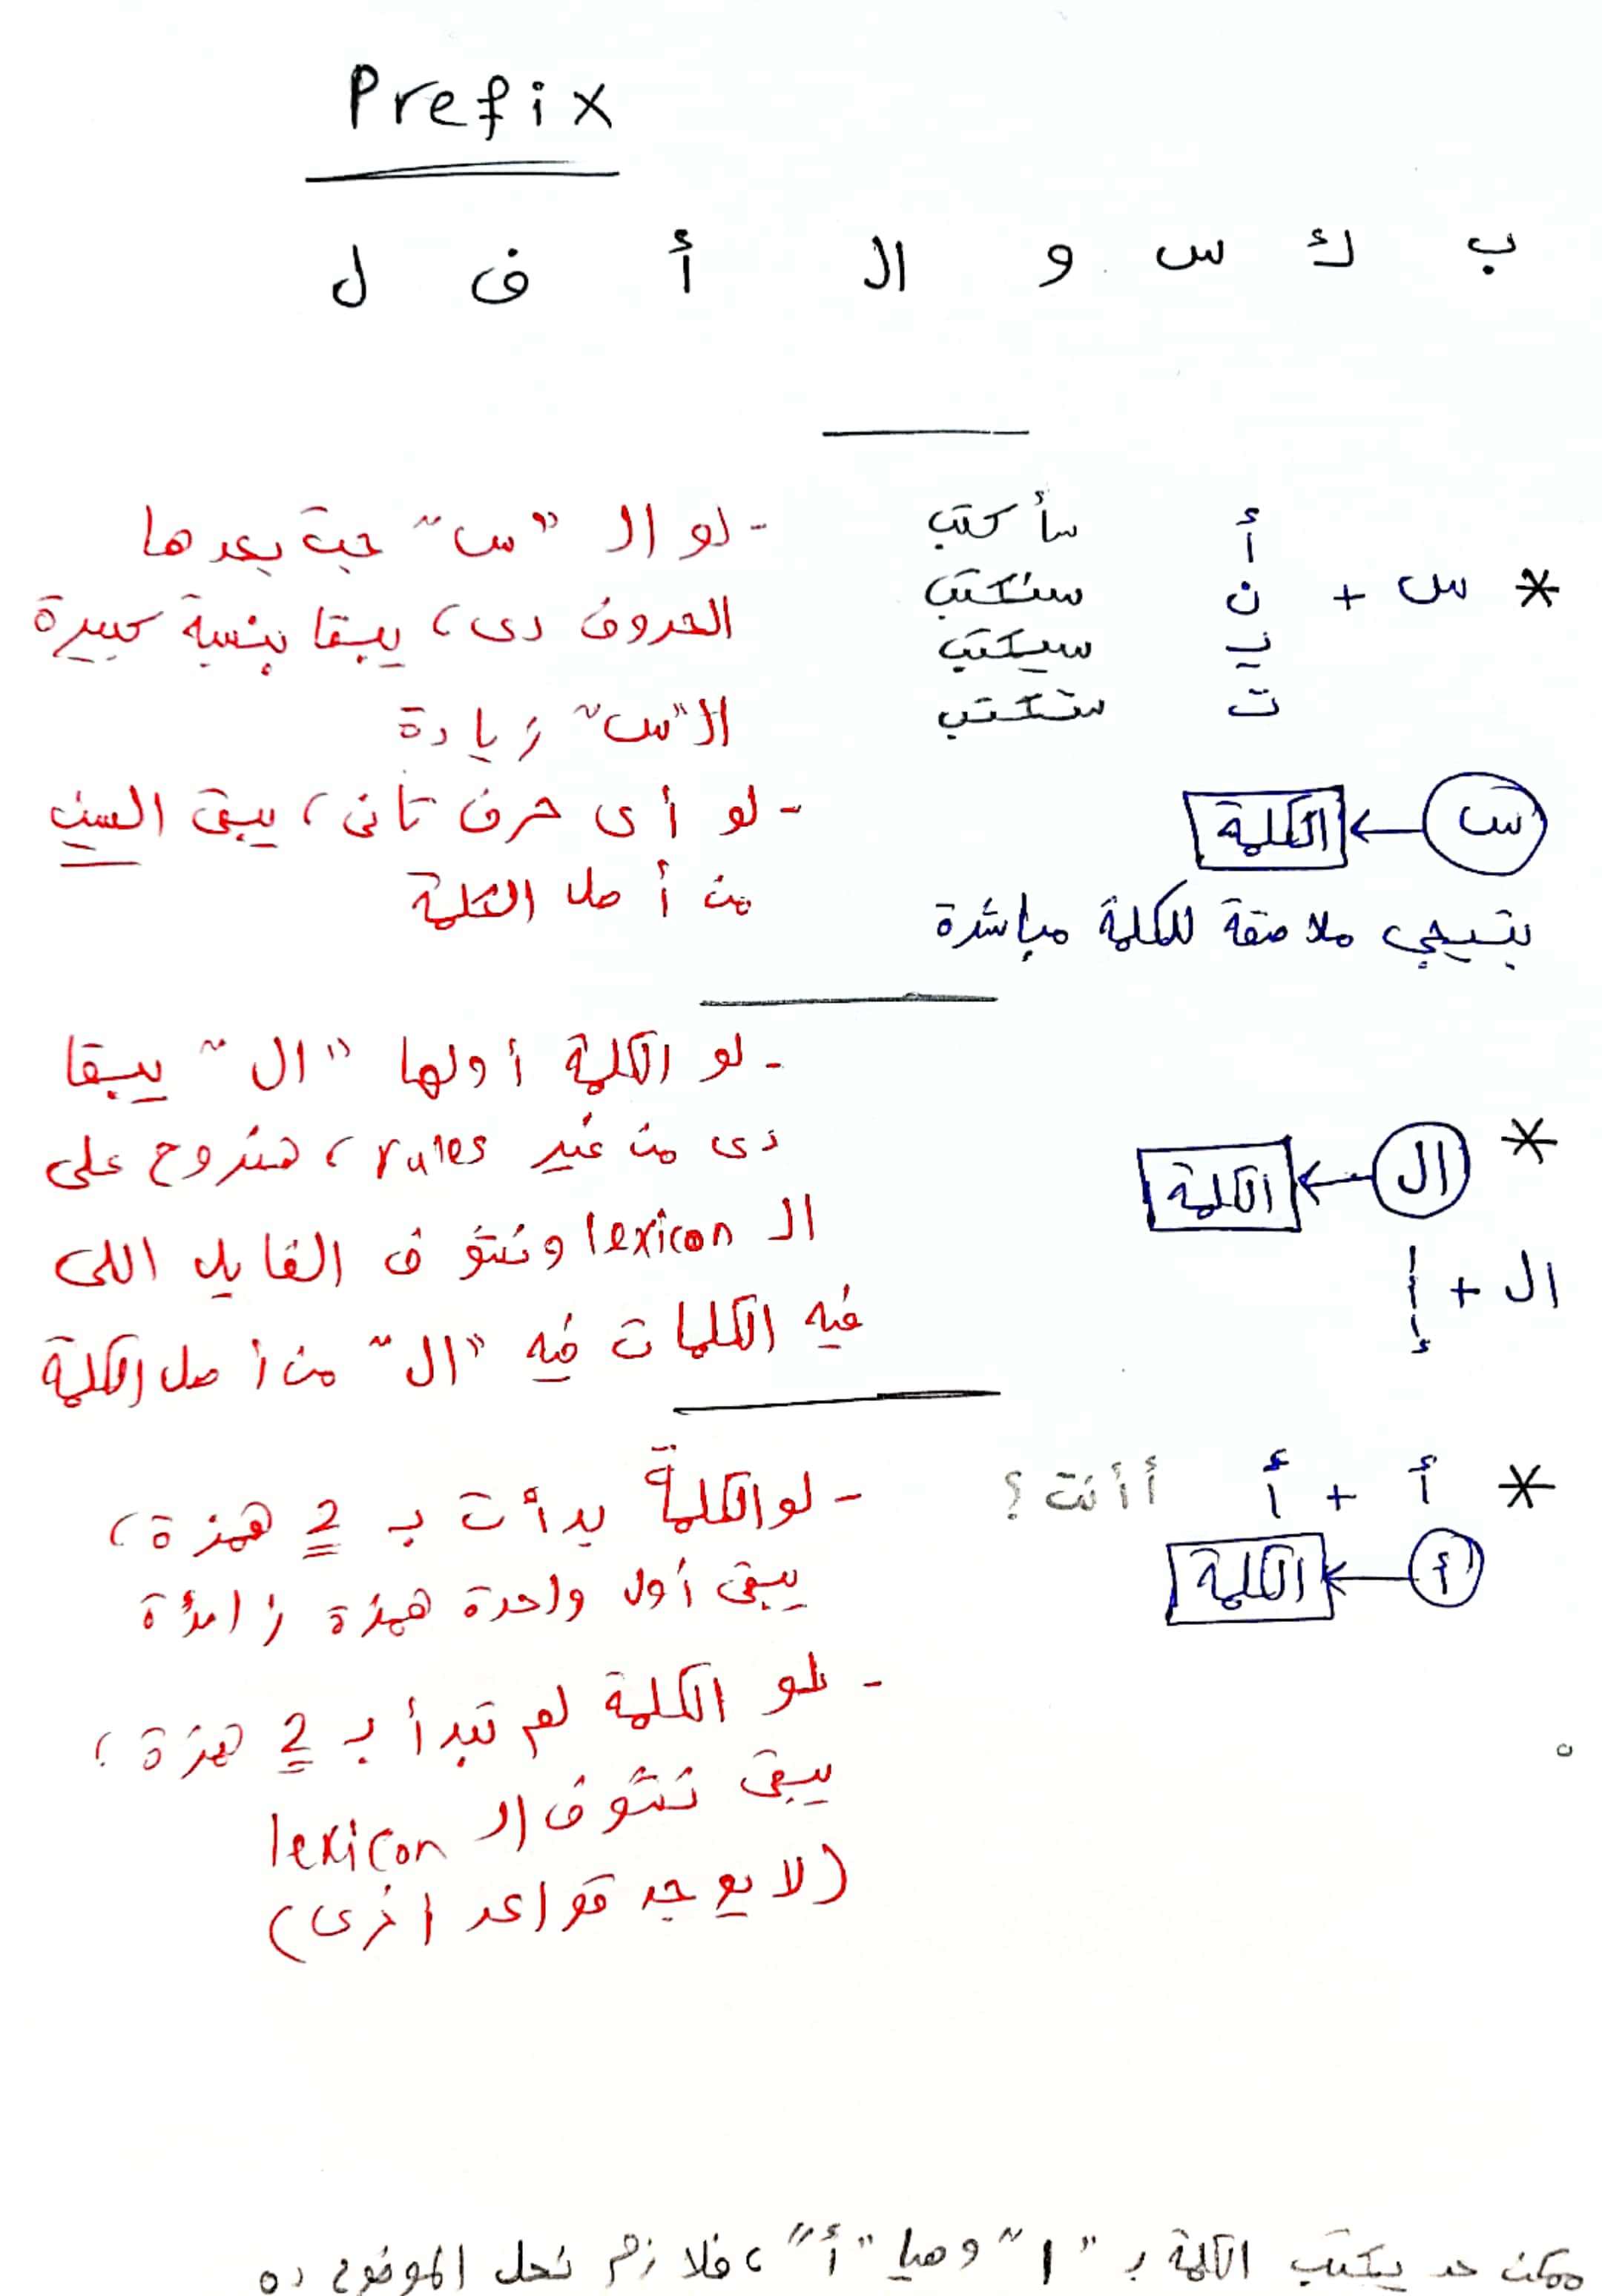 Prefix
ب ك س و ال أ ف ل
* س + أ سأكتب
ن سنكتب
ي سيكتب
ت ستكتب
س ← الكلمة
بتيجي ملاصقة للكلمة مباشرة
- لو ال "س" جت بعدها
الحروف دى، يبقا بنسبة كبيرة
ال "س" زيادة
- لو أى حرف تانى، يبقى السين
من أصل الكلمة
* ال ← الكلمة
ال + ا إ
- لو الكلمة أولها "ال" يبقا
دى من غير rules، هنروح على
ال lexicon ونشوف الفايل اللى
فيه الكلمات فيه "ال" من أصل الكلمة
* أ + أ أأنت؟
أ ← الكلمة
- لو الكلمة بدأت بـ 2 همزة،
يبقى أول واحدة همزة زائدة
- لو الكلمة لم تبدأ بـ 2 همزة،
يبقى نشوف ال lexicon
(لا يوجد قواعد اخرى)
ممكن حد يكتب الكلمة بـ "ا" وهيا "أ"، فلازم نحل الموضوع ده